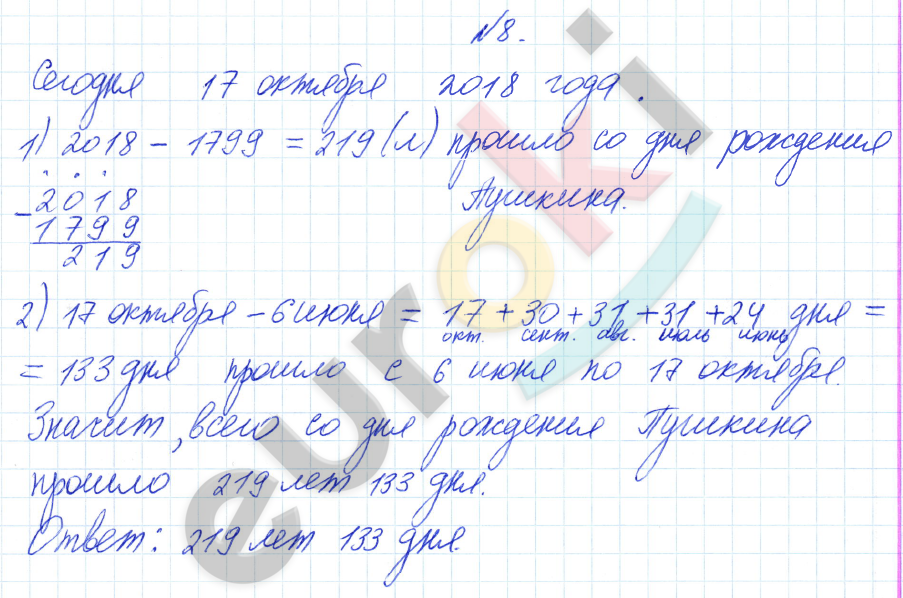 №8.
Сегодня 17 октября 2018 года.
1) 2018 - 1799 = 219 (л) прошло со дня рождения
Пушкина.
- 2018
1799
219
2) 17 октября - 6 июня = 17 + 30 + 31 + 31 + 24 дня =
окт. сент. авг. июль июнь
= 133 дня прошло с 6 июня по 17 октября.
Значит, всего со дня рождения Пушкина
прошло 219 лет 133 дня.
Ответ: 219 лет 133 дня.
euroki